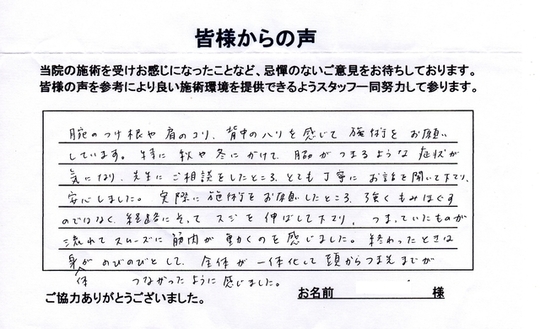 皆様からの声
当院の施術を受けお感じになったことなど、忌憚のないご意見をお待ちしております。
皆様の声を参考により良い施術環境を提供できるようスタッフ一同努力して参ります。
腕のつけ根や肩のコリ、背中のハリを感じて施術をお願い
しています。特に秋や冬にかけて、胸がつまるような症状が
気になり、先生にご相談をしたところ、とても丁寧にお話を聞いて下さり、
安心しました。実際に施術をお願いしたところ、強くもみほぐす
のではなく、経絡にそってスジを伸ばして下さり、つまっていたものが
流れてスムーズに筋肉が動くのを感じました。終わったときは
身がのびのびとして、全体が一体化して頭からつま先までが
体 つながったように感じました。
ご協力ありがとうございました。 お名前 様